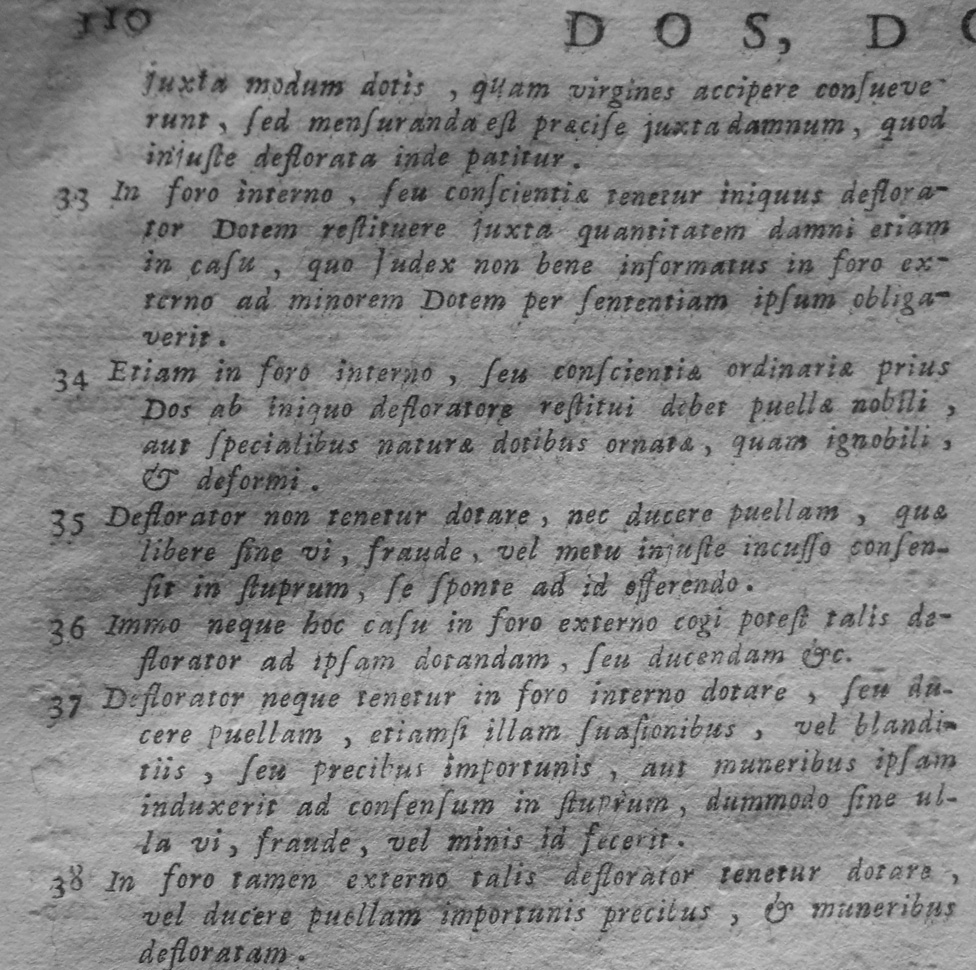 110 DOS, DO
juxta modum dotis , quam virgines accipere conſueve-
runt , ſed menſuranda eſt præciſe juxta damnum , quod
injuſte deflorata inde patitur .
33 In foro interno , ſeu conſcientiæ tenetur iniquus deflora-
tor Dotem reſtituere juxta quantitatem damni etiam
in caſu , quo Judex non bene informatus in foro ex-
terno ad minorem Dotem per ſententiam ipſum obliga-
verit .
34 Etiam in foro interno , ſeu conſcientiæ ordinariæ prius
Dos ab iniquo defloratore reſtitui debet puellæ nobili ,
aut ſpecialibus naturæ dotibus ornatæ , quam ignobili ,
& deformi .
35 Deflorator non tenetur dotare , nec ducere puellam , quæ
libere ſine vi , fraude , vel metu injuſte incuſſo conſen-
ſit in ſtuprum , ſe ſponte ad id offerendo .
36 Immo neque hoc caſu in foro externo cogi poteſt talis de-
florator ad ipſam dotandam , ſeu ducendam &c.
37 Deflorator neque tenetur in foro interno dotare , ſeu du-
cere puellam , etiamſi illam ſuaſionibus , vel blandi-
tiis , ſeu precibus importunis , aut muneribus ipſam
induxerit ad conſenſum in ſtuprum , dummodo ſine ul-
la vi , fraude , vel minis id fecerit .
38 In foro tamen externo talis deflorator tenetur dotare ,
vel ducere puellam importunis precibus , & muneribus
defloratam .